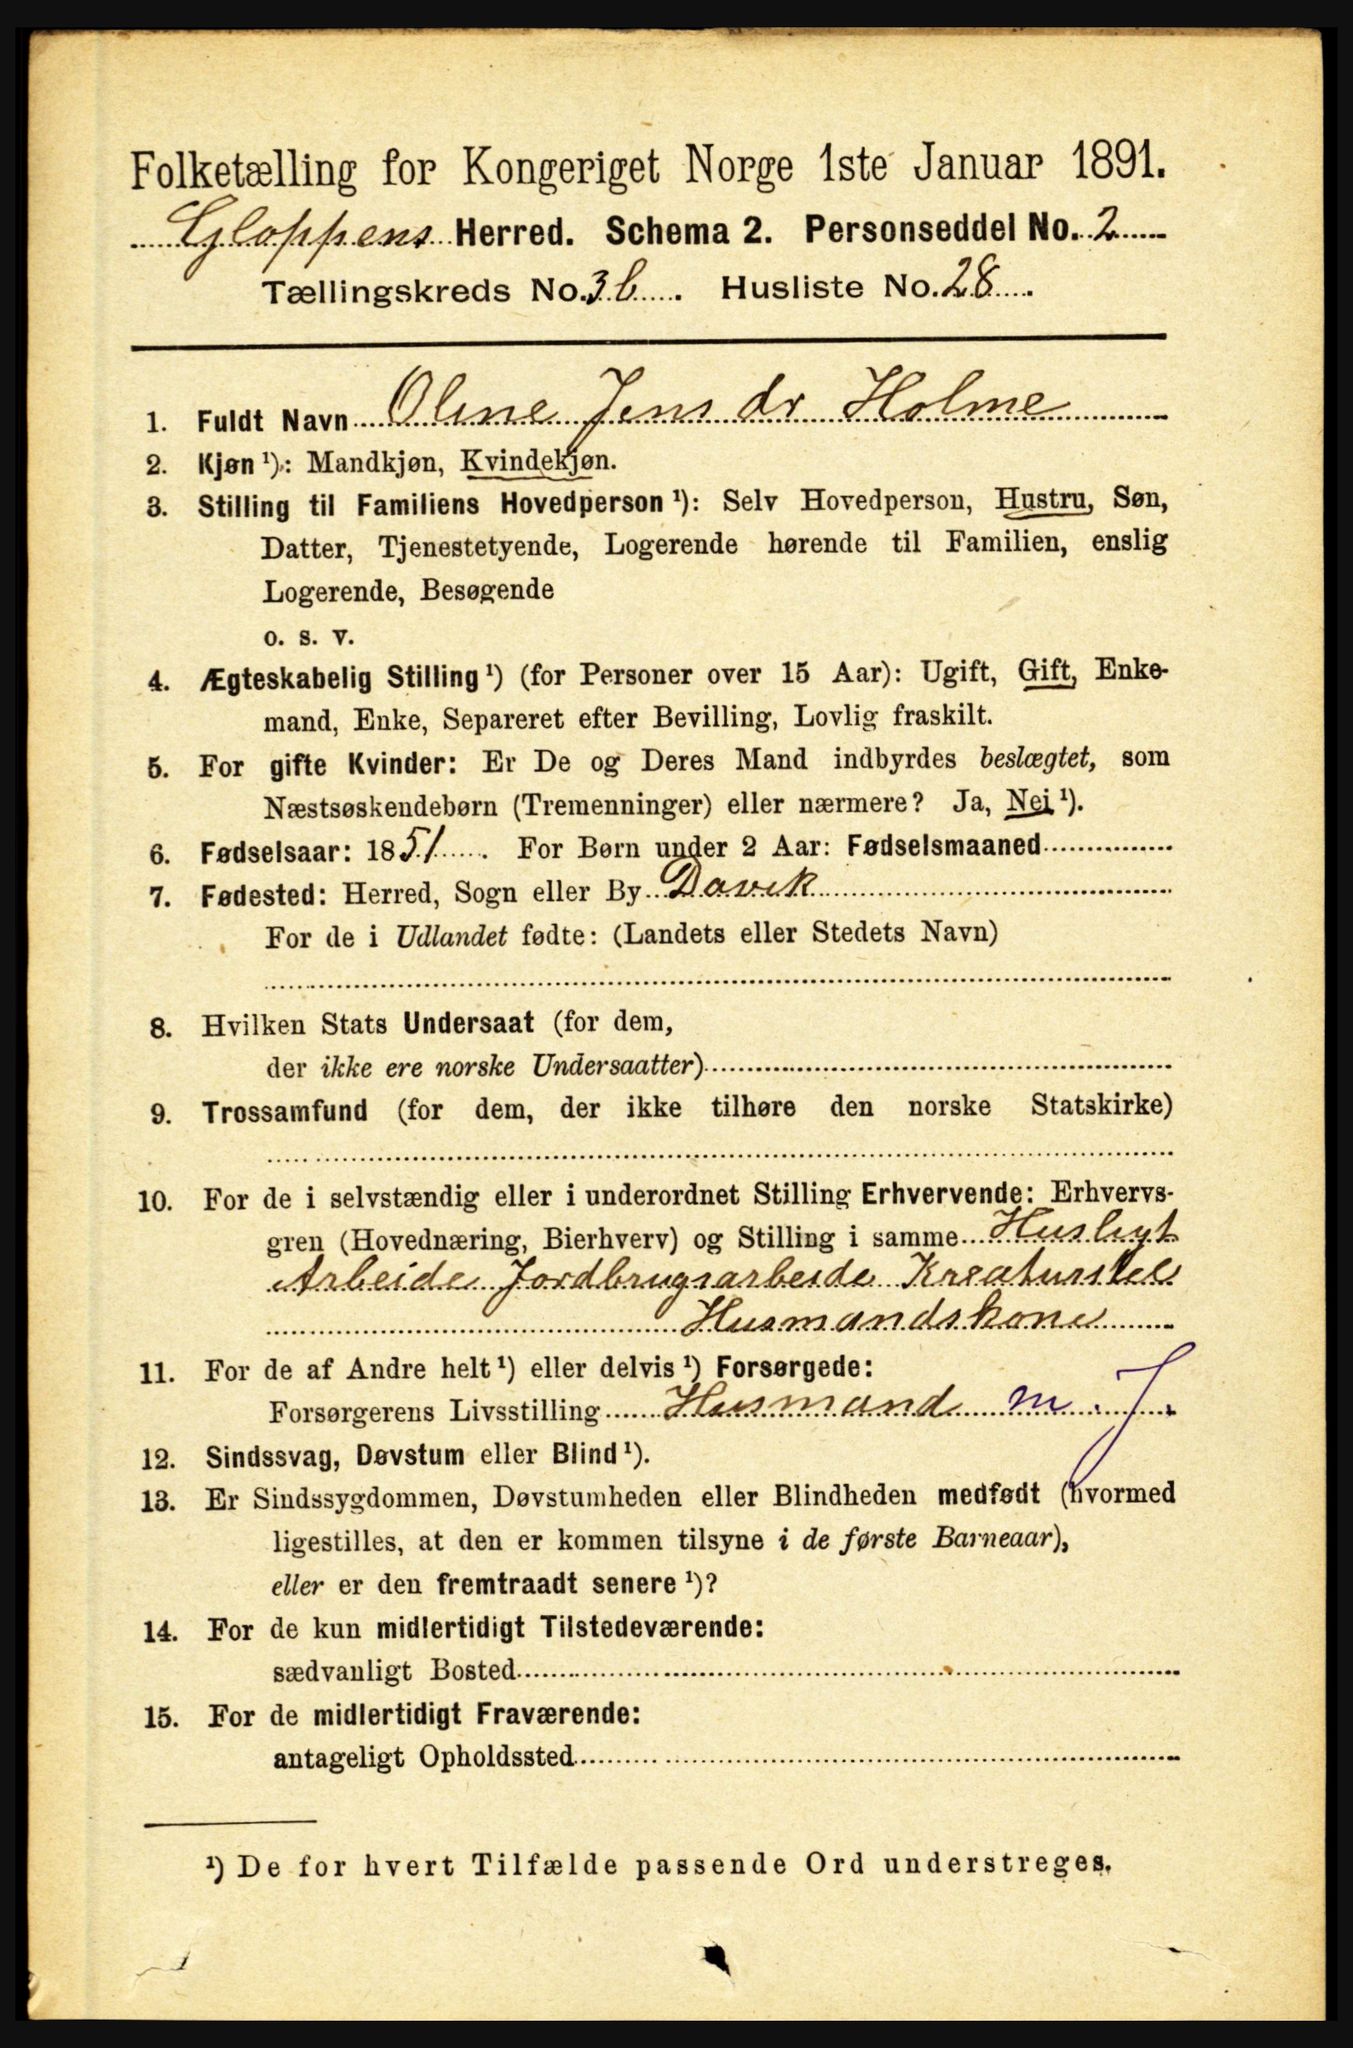 Folketælling for Kongeriget Norge 1ste Januar 1891.
Gloppens Herred. Schema 2. Personseddel No. 2
Tællingskreds No. 3b. Husliste No. 28.
1. Fuldt Navn Oline Jensdr Holme
2. Kjøn ¹): Mandkjøn, Kvindekjøn.
3. Stilling til Familiens Hovedperson ¹): Selv Hovedperson, Hustru, Søn,
Datter, Tjenestetyende, Logerende hørende til Familien, enslig
Logerende, Besøgende
o. s. v.
4. Ægteskabelig Stilling ¹) (for Personer over 15 Aar): Ugift, Gift, Enke-
mand, Enke, Separeret efter Bevilling, Lovlig fraskilt.
5. For gifte Kvinder: Er De og Deres Mand indbyrdes beslægtet, som
Næstsøskendebørn (Tremenninger) eller nærmere? Ja, Nei ¹).
6. Fødselsaar: 1851. For Børn under 2 Aar: Fødselsmaaned
7. Fødested: Herred, Sogn eller By Davik
For de i Udlandet fødte: (Landets eller Stedets Navn)
8. Hvilken Stats Undersaat (for dem,
der ikke ere norske Undersaatter)
9. Trossamfund (for dem, der ikke tilhøre den norske Statskirke)
10. For de i selvstændig eller i underordnet Stilling Erhvervende: Erhvervs-
gren (Hovednæring, Bierhverv) og Stilling i samme Husligt
Arbeide Jordbrugsarbeide Kreaturstel
Husmandskone
11. For de af Andre helt ¹) eller delvis ¹) Forsørgede:
Forsørgerens Livsstilling Husmand m. J.
12. Sindssvag, Døvstum eller Blind ¹).
13. Er Sindssygdommen, Døvstumheden eller Blindheden medfødt (hvormed
ligestilles, at den er kommen tilsyne i de første Barneaar),
eller er den fremtraadt senere ¹)?
14. For de kun midlertidigt Tilstedeværende:
sædvanligt Bosted
15. For de midlertidigt Fraværende:
antageligt Opholdssted
¹) De for hvert Tilfælde passende Ord understreges.